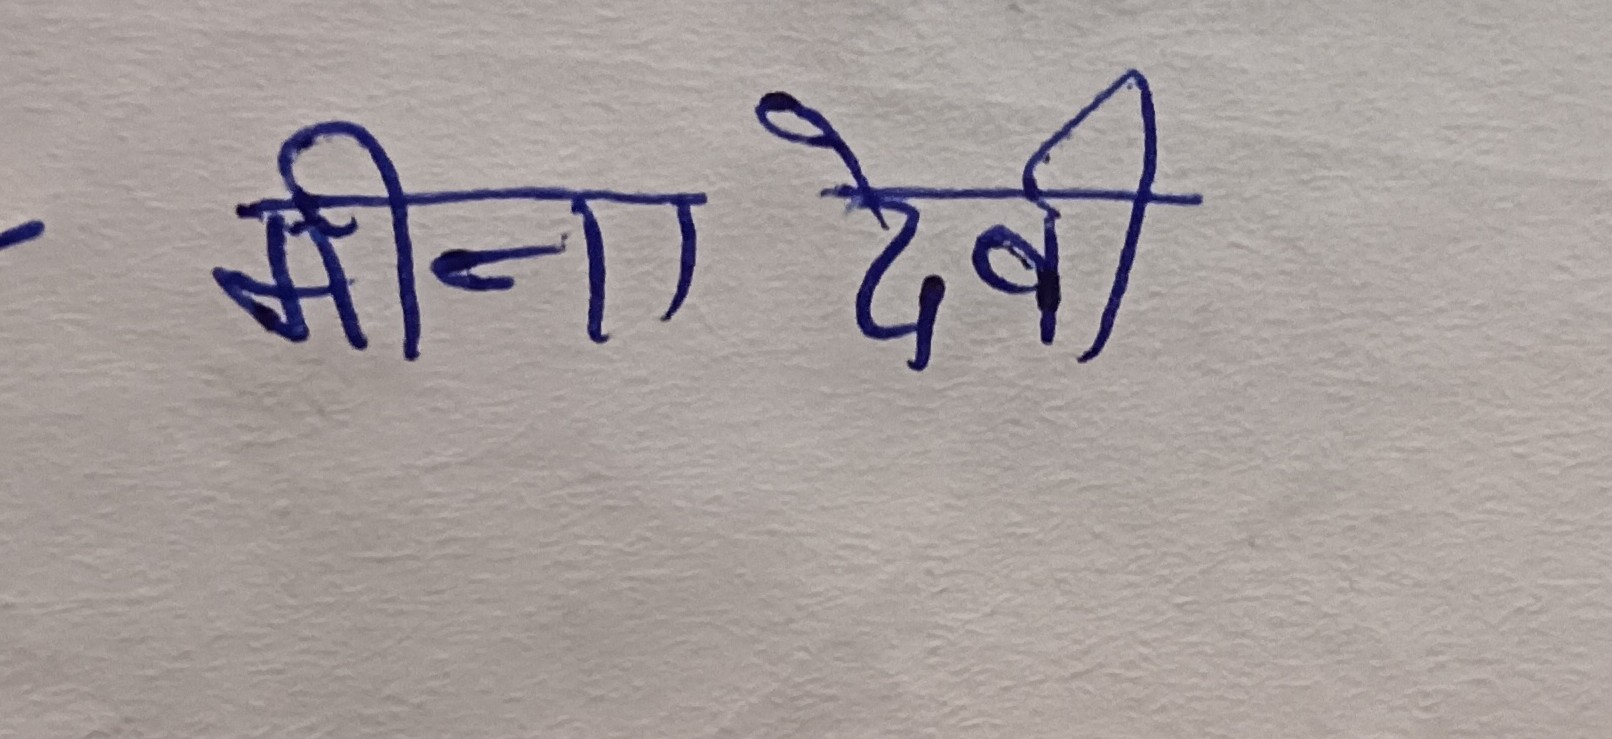 - मीना देवी